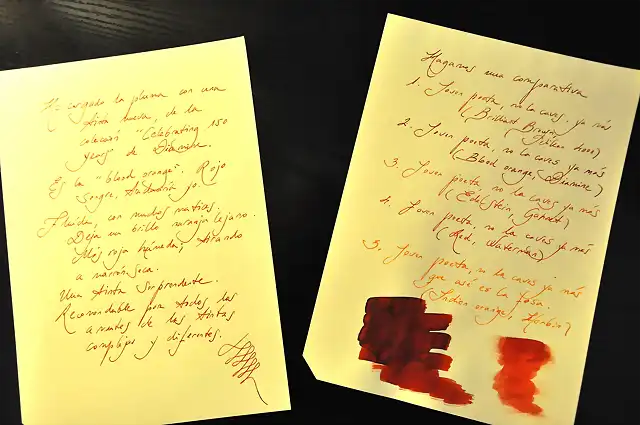 He cargado la pluma con una
tinta nueva, de la
colección "Celebrating 150
years" de Diamine.
Es la "blood orange". Rojo
sangre, diría yo.
Fluida, con muchos matices.
Deja un brillo naranja lejano.
Más roja húmeda, tirando
a marrón seca.
Una tinta sorprendente.
Recomendable por todos los
amantes de las tintas
complejas y diferentes.
Hagamos una comparativa
1. Joven poeta, no la caves ya más
(Brilliant Brown, Pelikan 4000)
2. Joven poeta, no la caves ya más
(Blood orange, Diamine)
3. Joven poeta, no la caves ya más
(Edelstein, Garnet)
4. Joven poeta, no la caves ya más
(Red, Waterman)
5. Joven poeta, no la caves ya más
que así es la fosa.
(Indian orange,